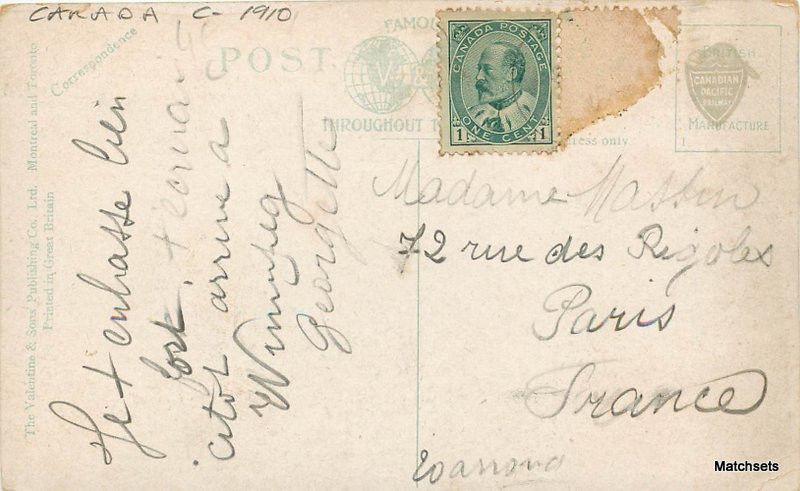 CANADA C-1910
Correspondence
POST
FAMO
V & S
THROUGHOUT T
CANADA POSTAGE
1 ONE CENT 1
BRITISH
CANADIAN
PACIFIC
RAILWAY
MANUFACTURE
ress only
The Valentine & Sons' Publishing Co., Ltd. Montreal and Toronto
Printed in Great Britain
Je t enbasse bien
fort. t
citot arrive a
Winnipeg
Georgette
Madame Massin
72 rue des Rigoles
Paris
France
Matchsets